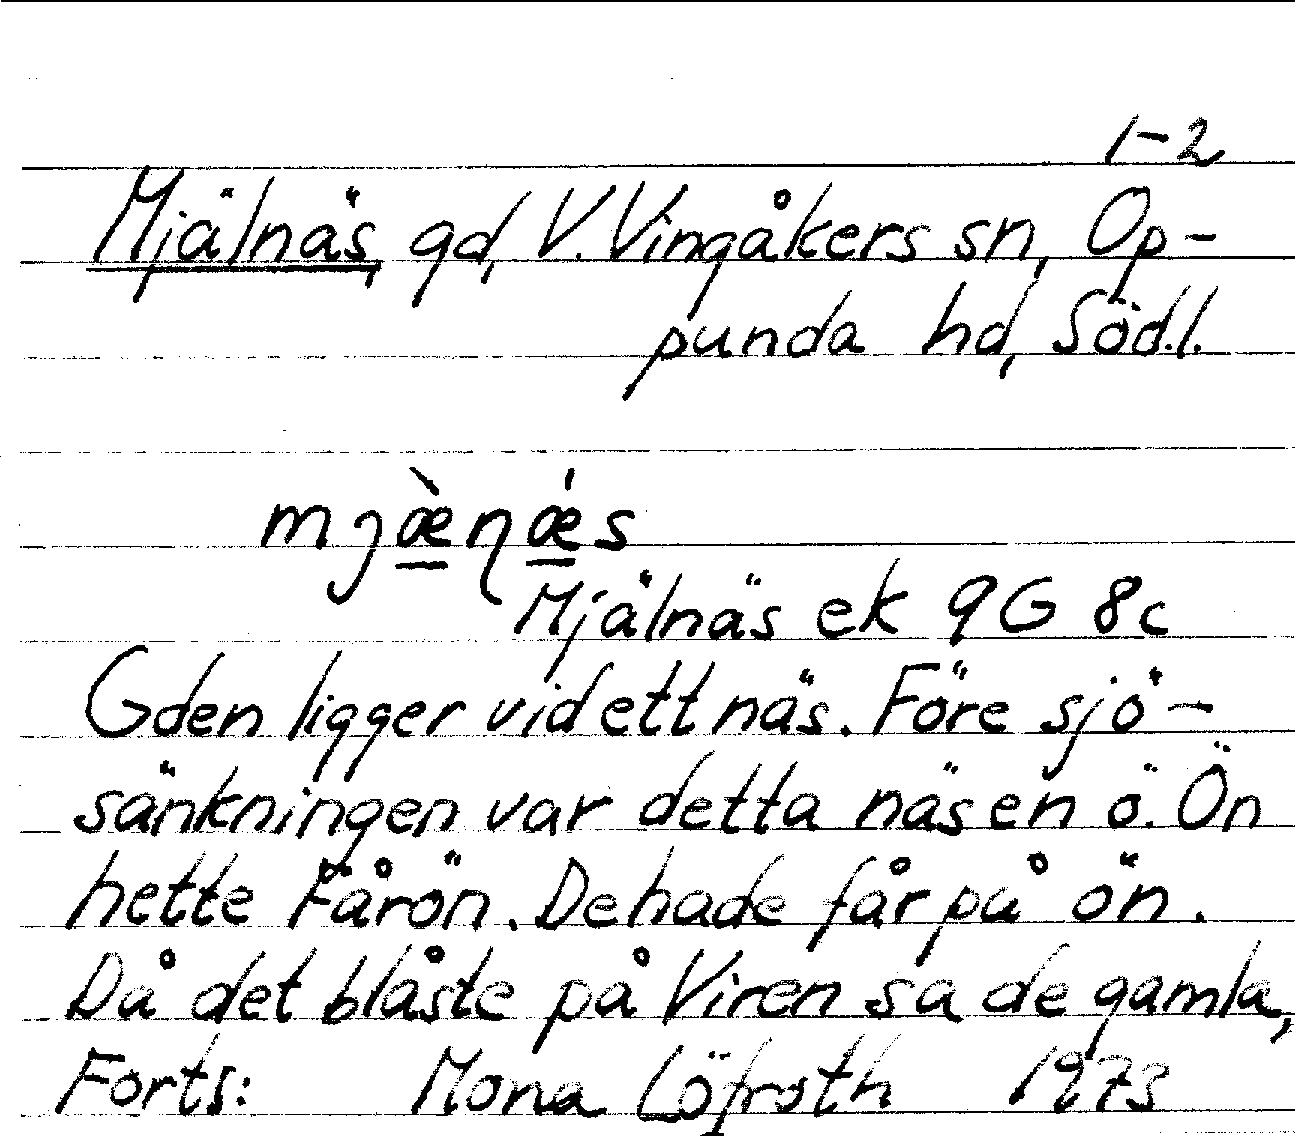 1-2
Mjälnäs, gd, V. Vingåkers sn, Op-
punda hd, Söd.l.
mjæ̠̀ɳǽ̠s
Mjälnäs ek 9G 8c
Gden ligger vid ett näs. Före sjö-
sänkningen var detta näs en ö. Ön
hette Fårön. De hade får på ön.
Då det blåste på Viren sa de gamla,
Forts: Mona Löfroth 1973